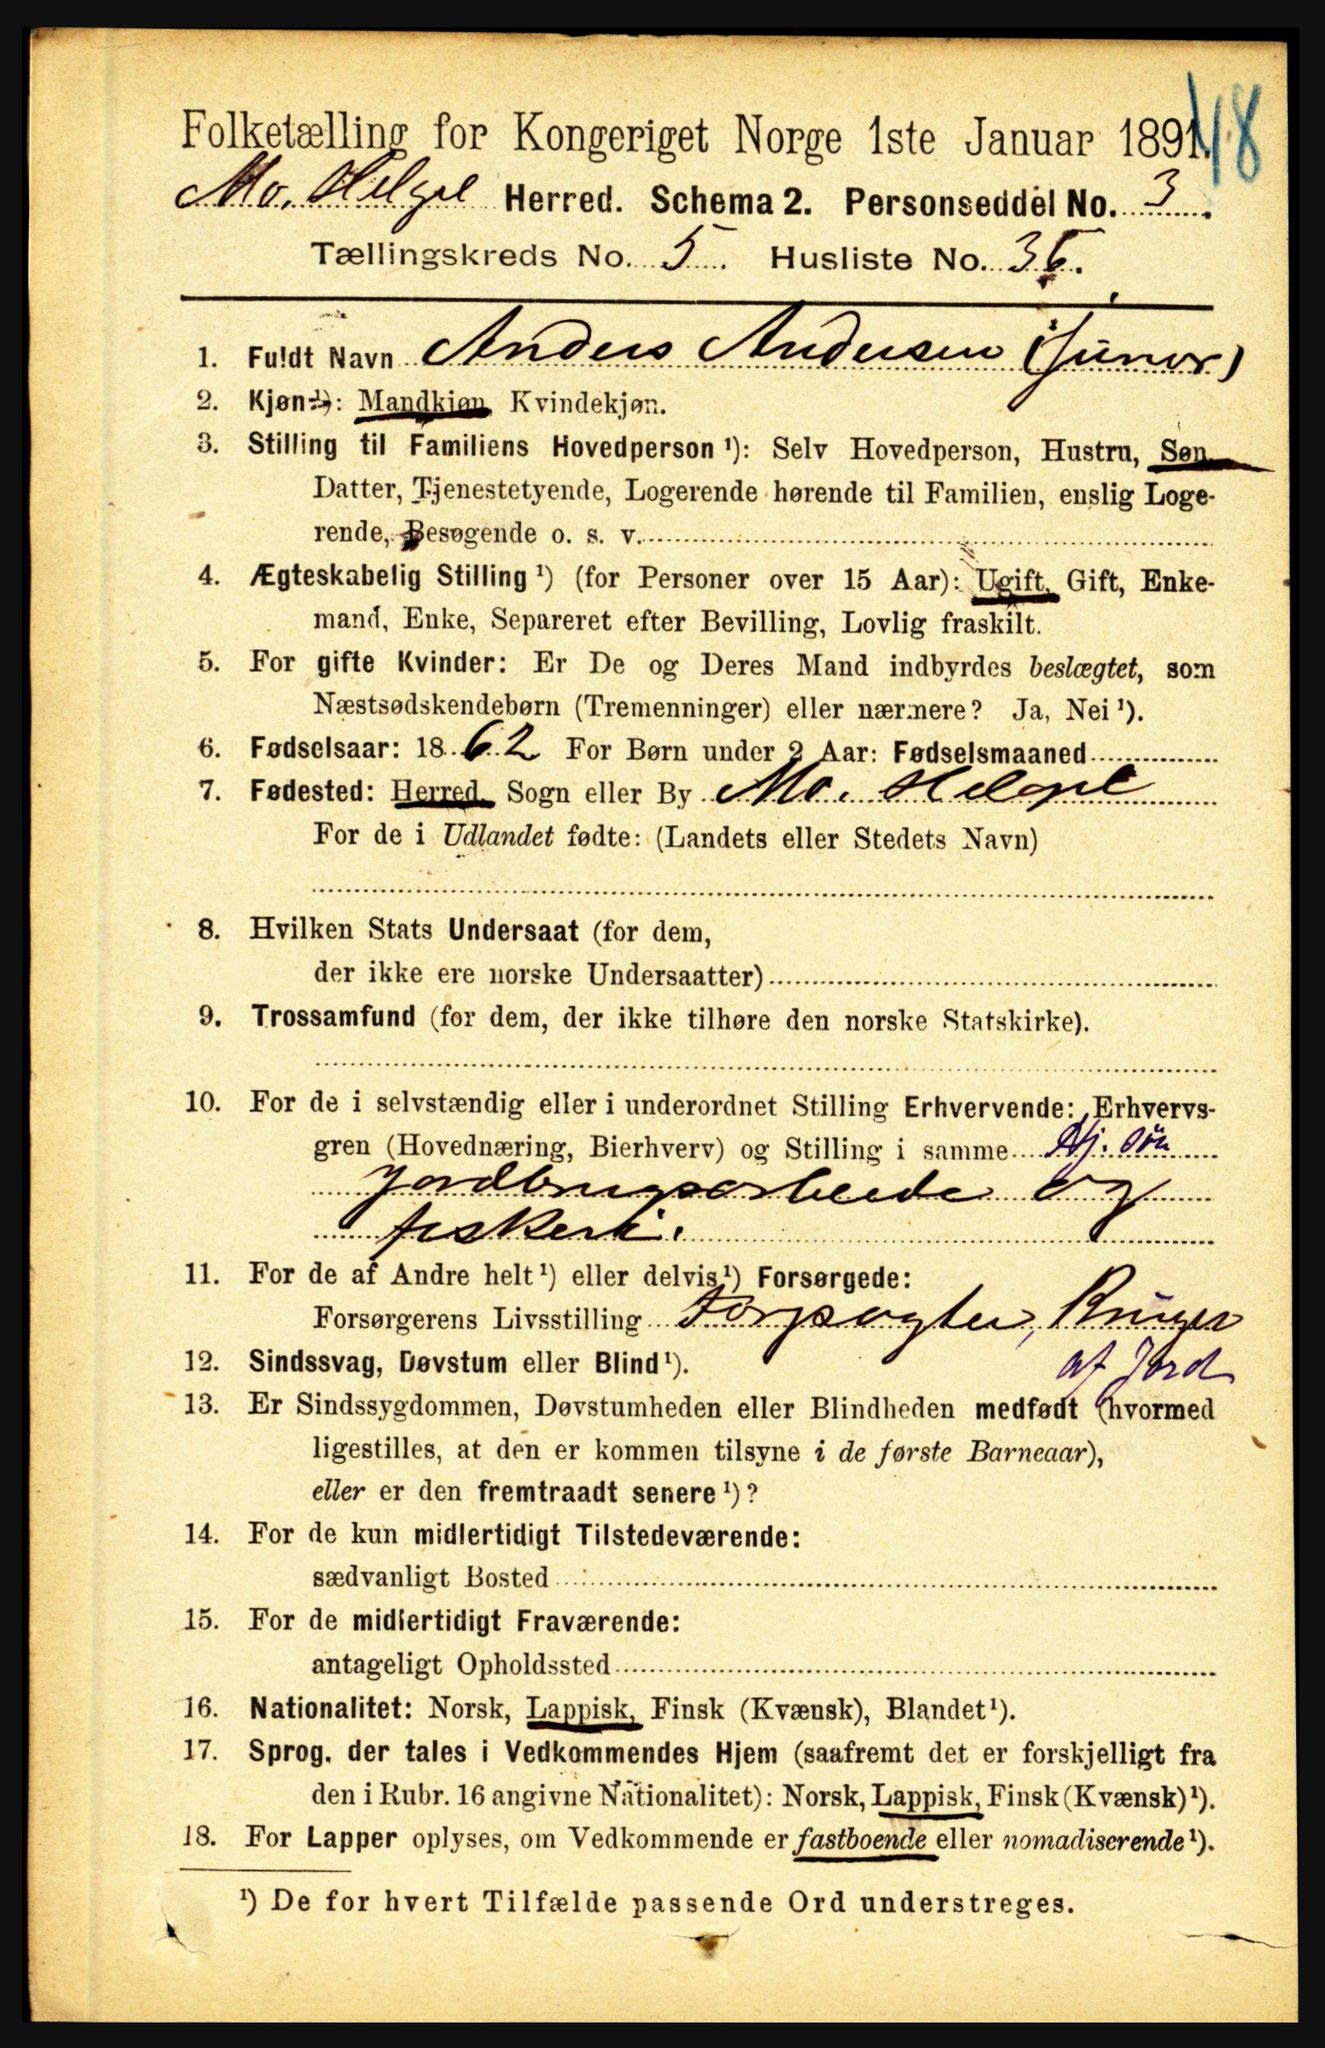 Folketælling for Kongeriget Norge 1ste Januar 1891.
Mo. Helgel Herred. Schema 2. Personseddel No. 3.
Tællingskreds No. 5. Husliste No. 36.
1. Fuldt Navn Anders Andersen (Junior)
2. Kjøn ¹): Mandkjøn, Kvindekjøn.
3. Stilling til Familiens Hovedperson ¹): Selv Hovedperson, Hustru, Søn,
Datter, Tjenestetyende, Logerende hørende til Familien, enslig Loge-
rende, Besøgende o. s. v.
4. Ægteskabelig Stilling ¹) (for Personer over 15 Aar): Ugift, Gift, Enke-
mand, Enke, Separeret efter Bevilling, Lovlig fraskilt.
5. For gifte Kvinder: Er De og Deres Mand indbyrdes beslægtet, som
Næstsødskendebørn (Tremenninger) eller nærmere? Ja, Nei ¹).
6. Fødselsaar: 1862 For Børn under 2 Aar: Fødselsmaaned
7. Fødested: Herred, Sogn eller By Mo. Helgel
For de i Udlandet fødte: (Landets eller Stedets Navn)
8. Hvilken Stats Undersaat (for dem,
der ikke ere norske Undersaatter)
9. Trossamfund (for dem, der ikke tilhøre den norske Statskirke).
10. For de i selvstændig eller i underordnet Stilling Erhvervende: Erhvervs-
gren (Hovednæring, Bierhverv) og Stilling i samme Hj. søn
Jordbrugsarbeide og
fiskeri.
11. For de af Andre helt ¹) eller delvis ¹) Forsørgede:
Forsørgerens Livsstilling Bruger
12. Sindssvag, Døvstum eller Blind ¹). af Jord
13. Er Sindssygdommen, Døvstumheden eller Blindheden medfødt (hvormed
ligestilles, at den er kommen tilsyne i de første Barneaar),
eller er den fremtraadt senere ¹)?
14. For de kun midlertidigt Tilstedeværende:
sædvanligt Bosted
15. For de midlertidigt Fraværende:
antageligt Opholdssted
16. Nationalitet: Norsk, Lappisk, Finsk (Kvænsk), Blandet ¹).
17. Sprog, der tales i Vedkommendes Hjem (saafremt det er forskjelligt fra
den i Rubr. 16 angivne Nationalitet): Norsk, Lappisk, Finsk (Kvænsk) ¹).
18. For Lapper oplyses, om Vedkommende er fastboende eller nomadiserende ¹).
¹) De for hvert Tilfælde passende Ord understreges.